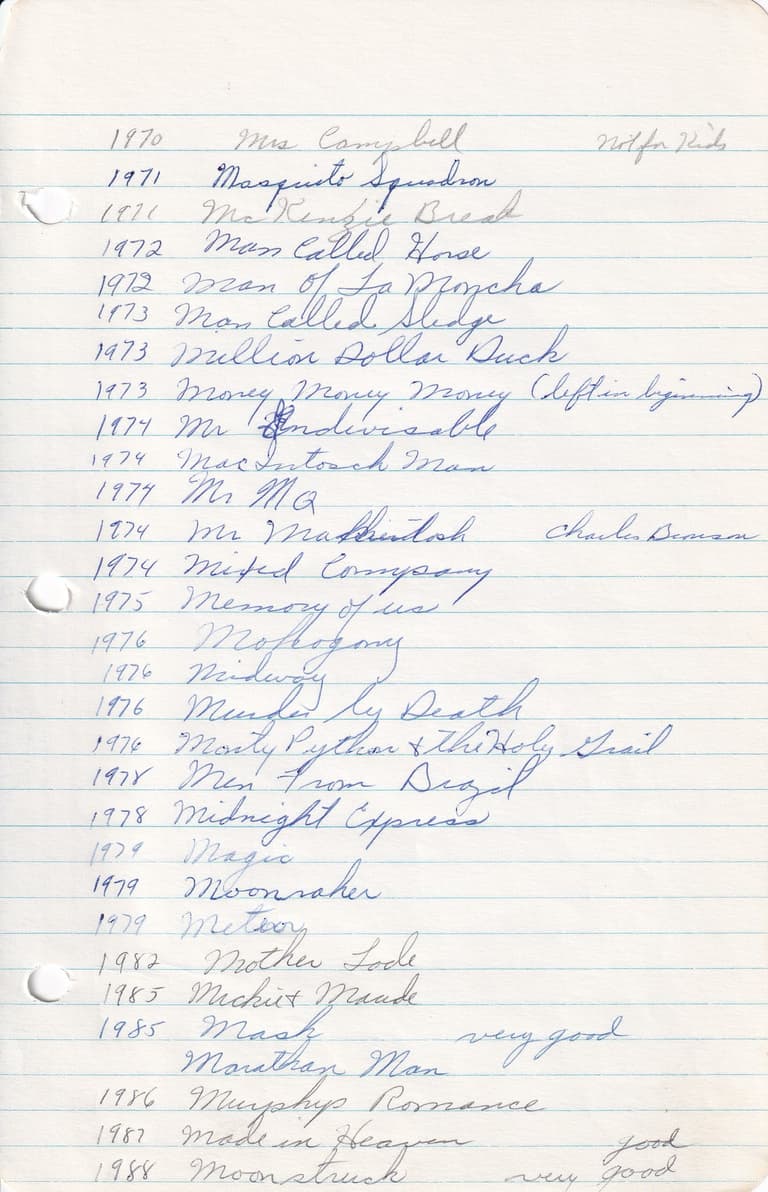 1970 Mrs Campbell Not for Kids
1971 Masquito Squadron
1971 McKenzie Break
1972 Man Called Horse
1972 Man Of La Moncha
1973 Man Called Sledge
1973 Million Dollar Duck
1973 Money Money Money (left in biginning)
1974 Mr Indevisable
1974 MacIntosch Man
1974 Mr MQ
1974 Mr Charles Bronson
1974 Mixed Company
1975 Memory of us
1976 Mohogony
1976 Midway
1976 Murder by Death
1976 Monty Python & the Holy Grail
1978 Men From Brazil
1978 Midnight Express
1979 Magic
1979 Moonraker
1979 Meteor
1982 Mother Lode
1985 Mickie & Maude
1985 Mask very good
Marathan Man
1986 Murphys Romance
1987 Made in Heaven good
1988 Moonstruck very good